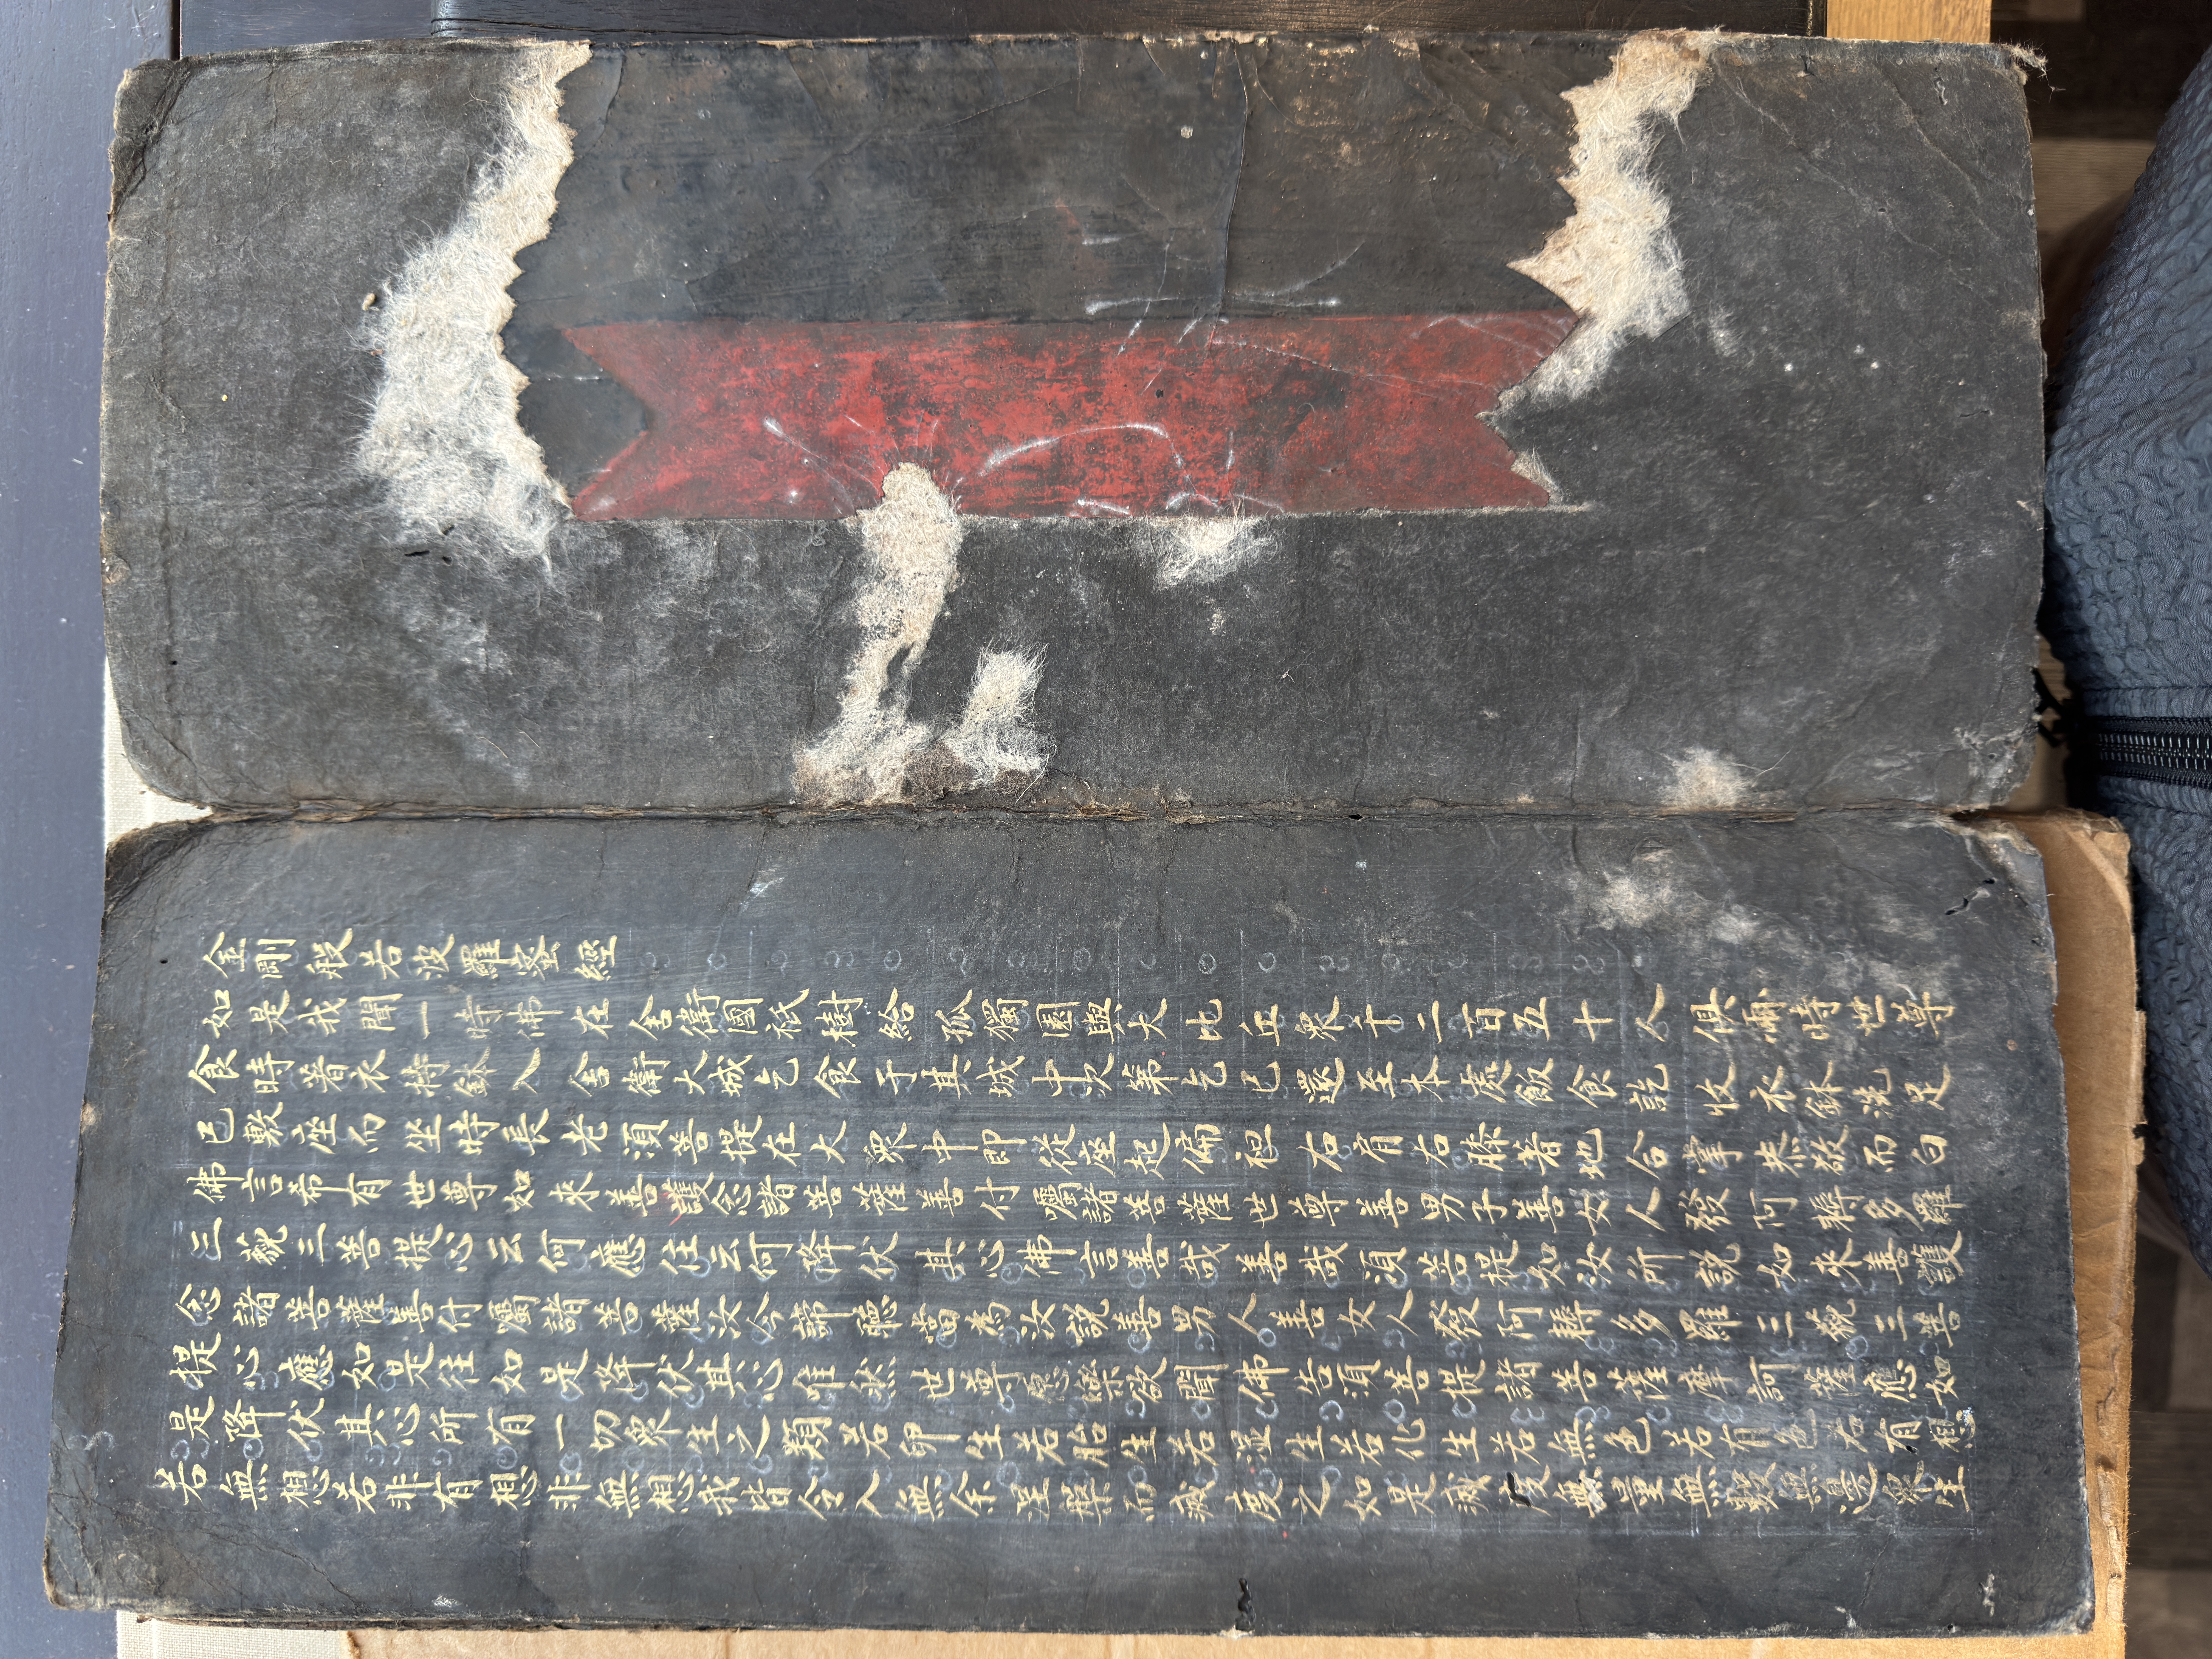 金剛般若波羅蜜經
如是我聞一時佛在舍衛國祇樹給孤獨園與大比丘衆千二百五十人俱爾時世尊
食時着衣持鉢入舍衛大城乞食于其城中次第乞已還至本處飯食訖收衣鉢洗足
已敷座而坐時長老須菩提在大衆中即從座起偏袒右肩右膝著地合掌恭敬而白
佛言希有世尊如來善護念諸菩薩善付囑諸菩薩世尊善男子善女人發阿耨多羅
三藐三菩提心云何應住云何降伏其心佛言善哉善哉須菩提如汝所說如來善護
念諸菩薩善付囑諸菩薩汝今諦聽當為汝說善男人善女人發阿耨多羅三藐三菩
提心應如是住如是降伏其心唯然世尊願樂欲聞佛告須菩提諸菩薩摩訶薩應如
是降伏其心所有一切衆生之類若卵生若胎生若湿生若化生若無色若有色若有想
若無想若非有想非無想我皆令入無余涅槃而滅度之如是滅度無量無數無邊衆生